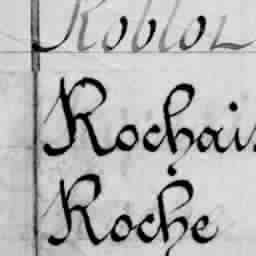 Roblot
Rochais
Roche